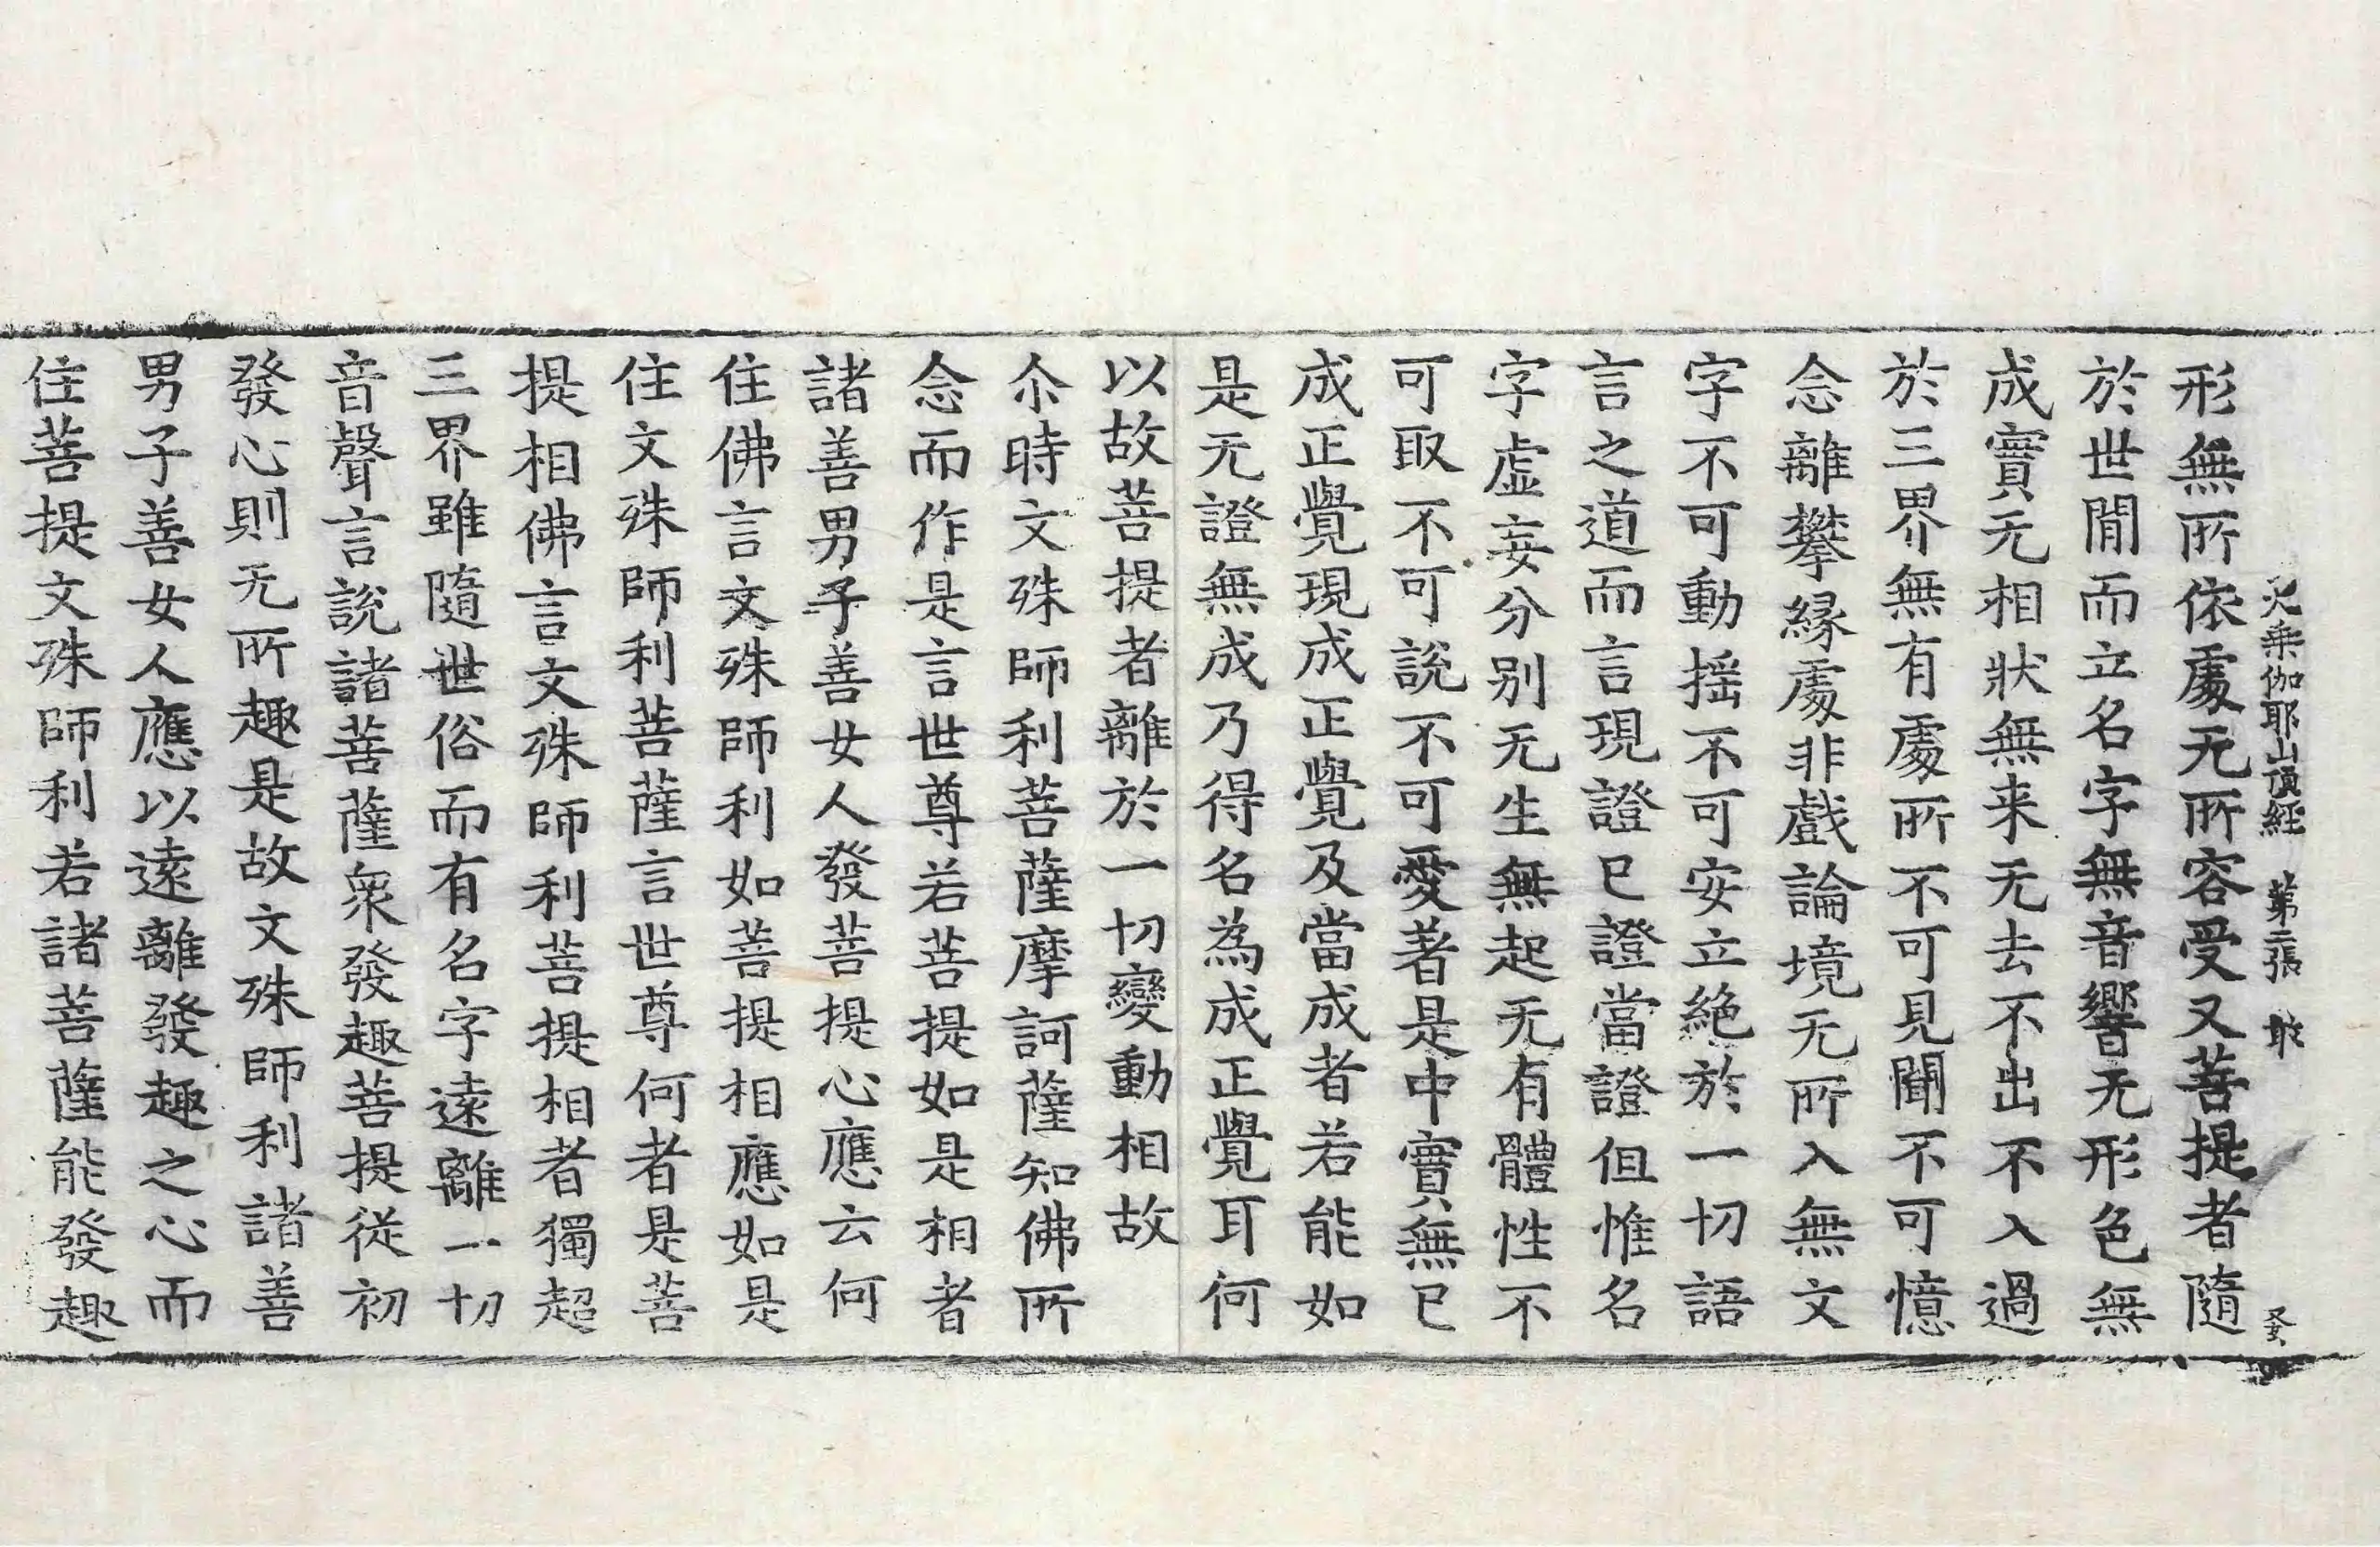 大乘伽耶山頂經 第二張 敢
形無所依處无所容受又菩提者隨
於世間而立名字無音響无形色無
成實无相狀無来无去不出不入過
於三界無有處所不可見聞不可憶
念離攀緣處非戲論境无所入無文
字不可動揺不可安立絶於一切語
言之道而言現證已證當證但惟名
字虛妄分别无生無起无有體性不
可取不可說不可愛著是中實無已
成正覺現成正覺及當成者若能如
是无證無成乃得名為成正覺耳何
以故菩提者離於一切變動相故
尒時文殊師利菩薩摩訶薩知佛所
念而作是言世尊若菩提如是相者
諸善男子善女人發菩提心應云何
住佛言文殊師利如菩提相應如是
住文殊師利菩薩言世尊何者是菩
提相佛言文殊師利菩提相者獨超
三界雖隨世俗而有名字遠離一切
音聲言說諸菩薩衆發趣菩提從初
發心則无所趣是故文殊師利諸善
男子善女人應以遠離發趣之心而
住菩提文殊師利若諸菩薩能發趣